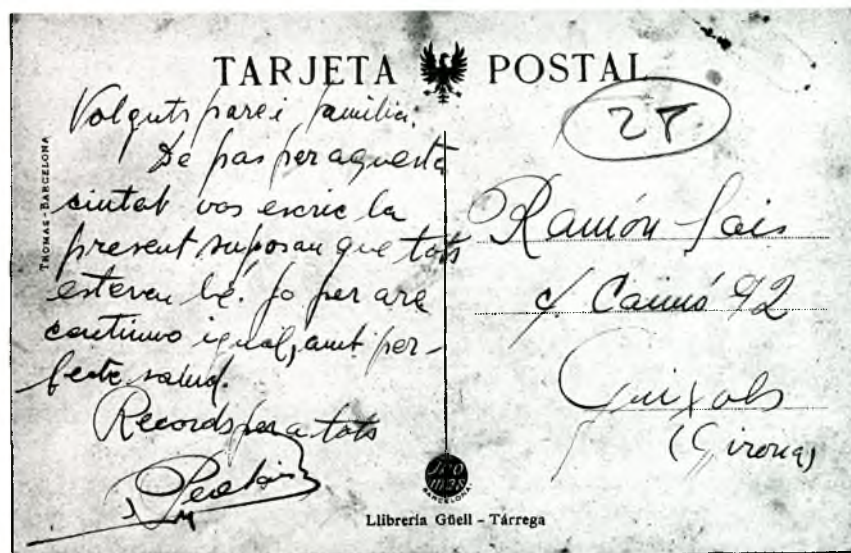 TARJETA POSTAL
Volguts pare i familia.
De pas per aquesta
ciutat vos escric la
present suposan que tots
estereu bé. Jo per are
continuo igual, amb per-
fecte salud.
Records per a tots
THOMAS - BARCELONA
27
Ramón Sais
c/. Caimó 92
Guixols
(Girona)
BARCELONA
Llibreria Güell - Tàrrega